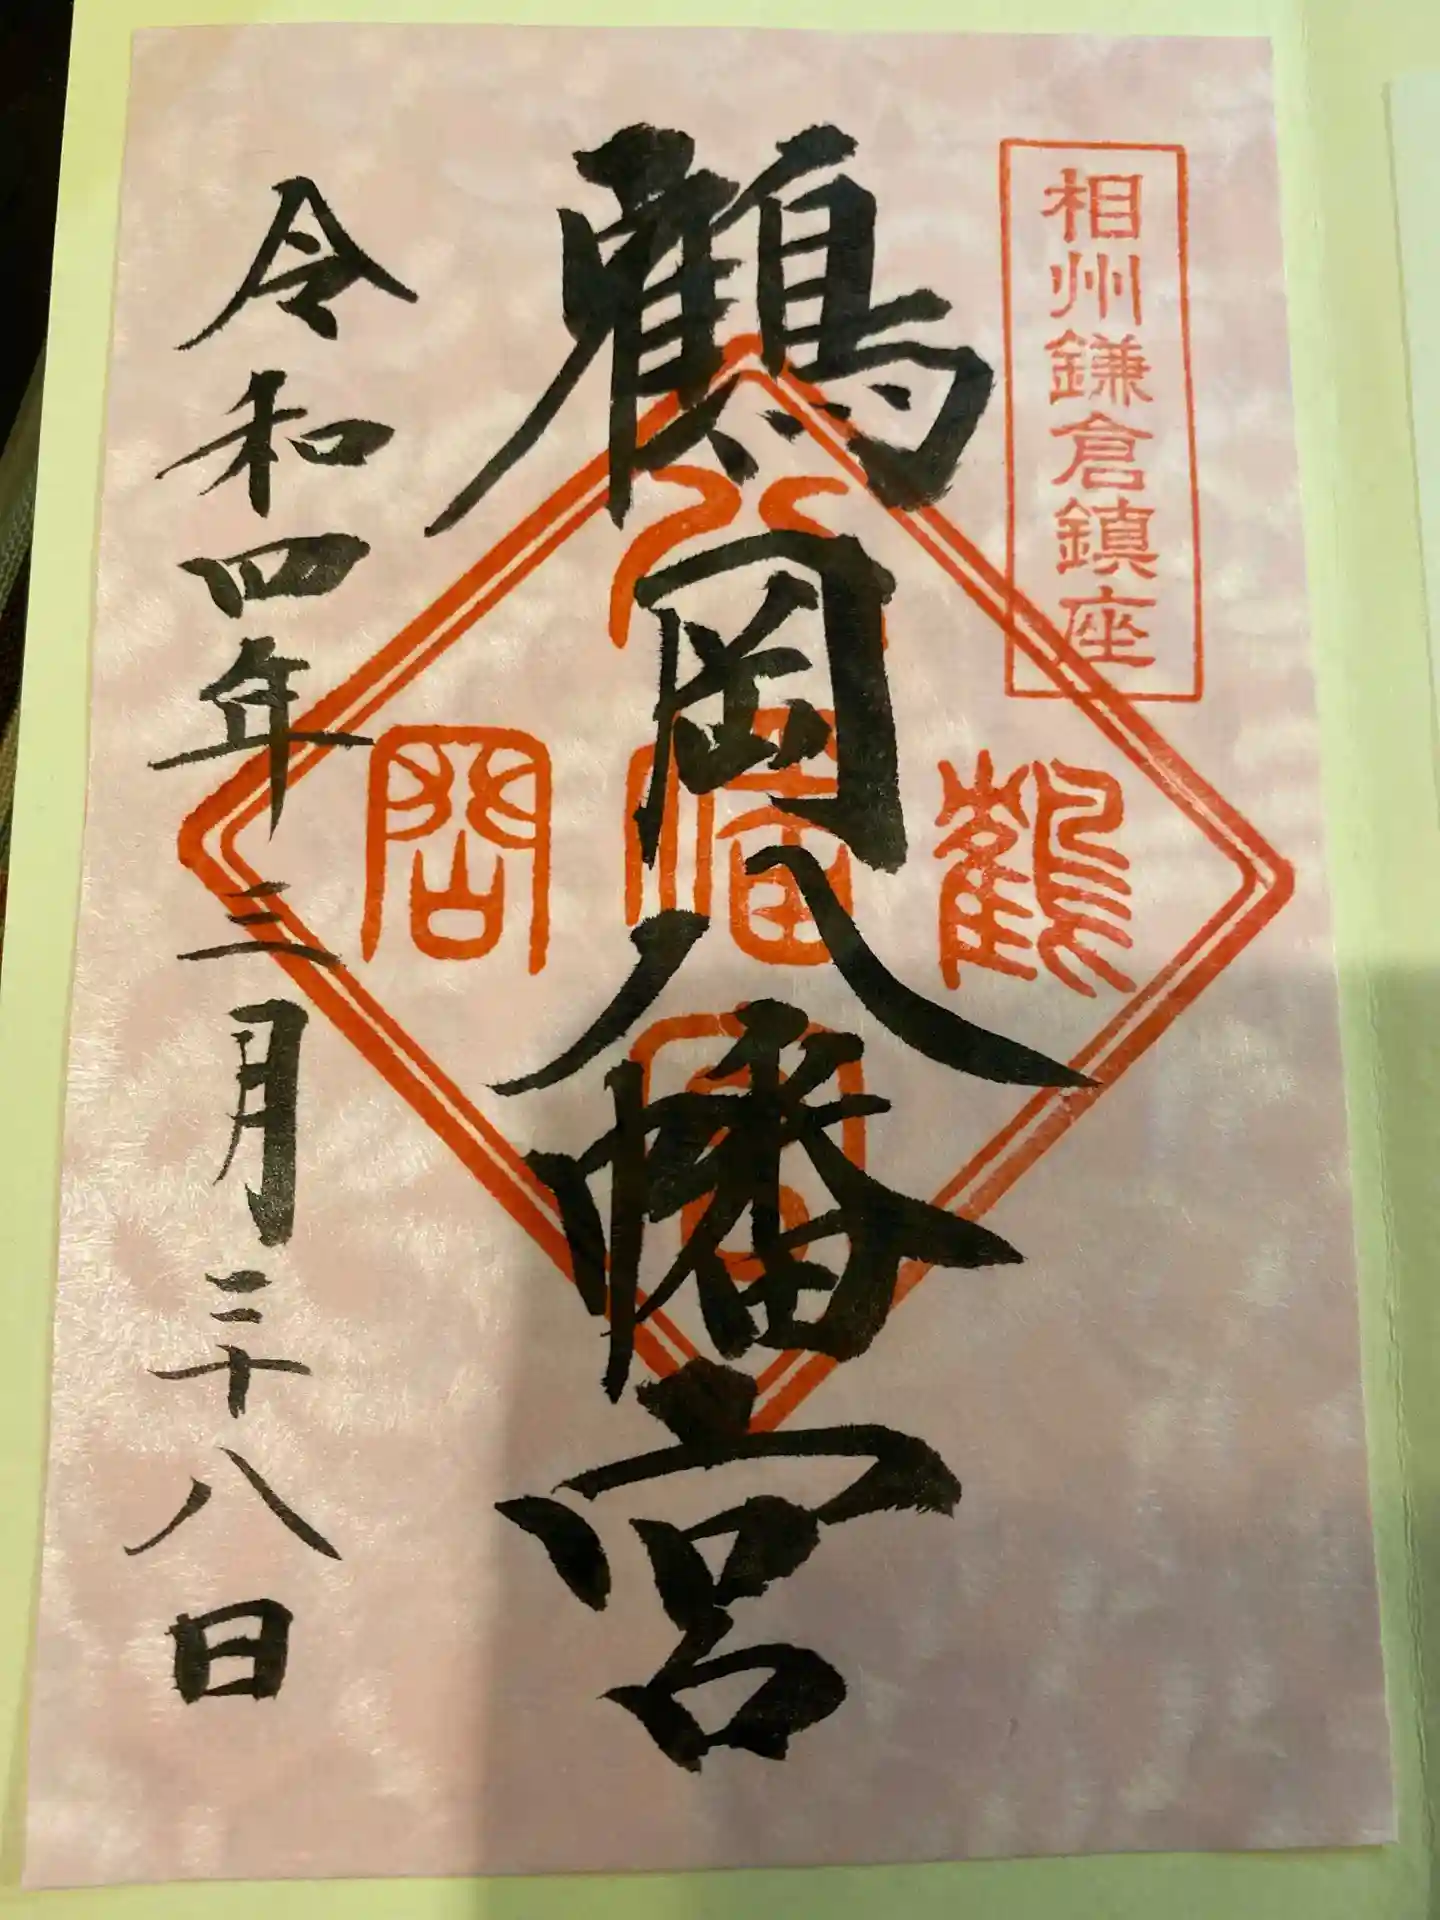 相州鎌倉鎮座
鶴岡八幡宮
令和四年三月二十八日
八
鶴幡岡
宮